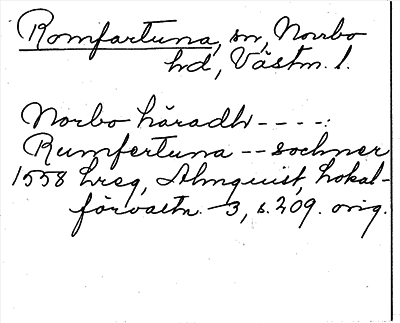 Romfartuna, sn, Norrbo
hd, Västm. l.
Norbo häradh ----:
Rumfertuna -- sochner
1558 hreg, Almquist, Lokal-
förvaltn. - 3, s. 209. orig.